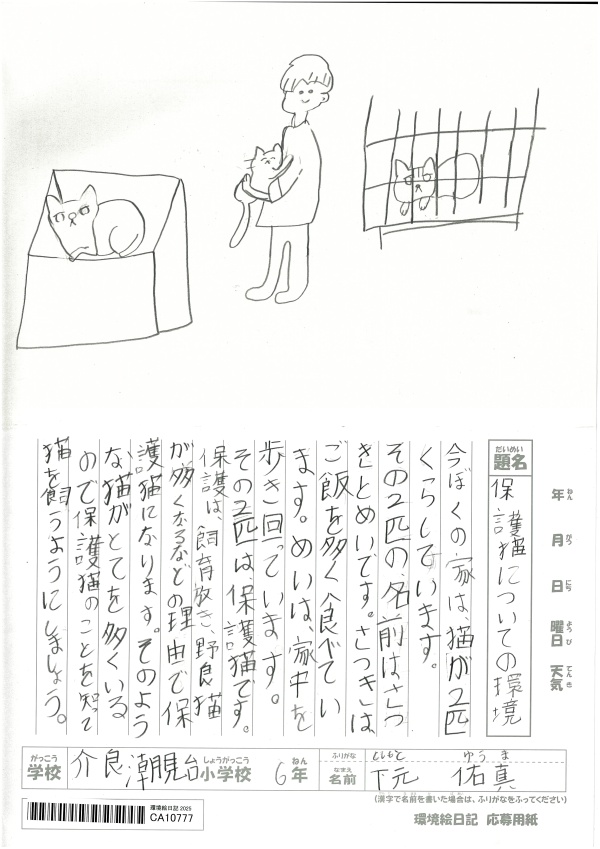 だいめい
題名
保護猫についての環境
年 ねん
月 がつ
日 にち
曜日 ようび
天気 てんき
今ぼくの家は、猫が2匹
くらしています。
その2匹の名前はさつ
きとめいです。さつきは
ご飯を多く食べてい
ます。めいは、家中を
歩き回っています。
その2匹は、保護猫です。
保護は、飼育放き、野良猫
が多くなるなどの理由で保
護猫になります。そのよう
な猫がとてを多くいる
ので保護猫のことを知って
猫を飼うようにしましょう。
がっこう
学校
介良潮見台
しょうがっこう
小学校
6年 ねん
ふりがな
しもと ゆうま
なまえ
名前
下元 佑真
(漢字で名前を書いた場合は、ふりがなをふってください)
環境絵日記 2025
CA10777
環境絵日記 応募用紙